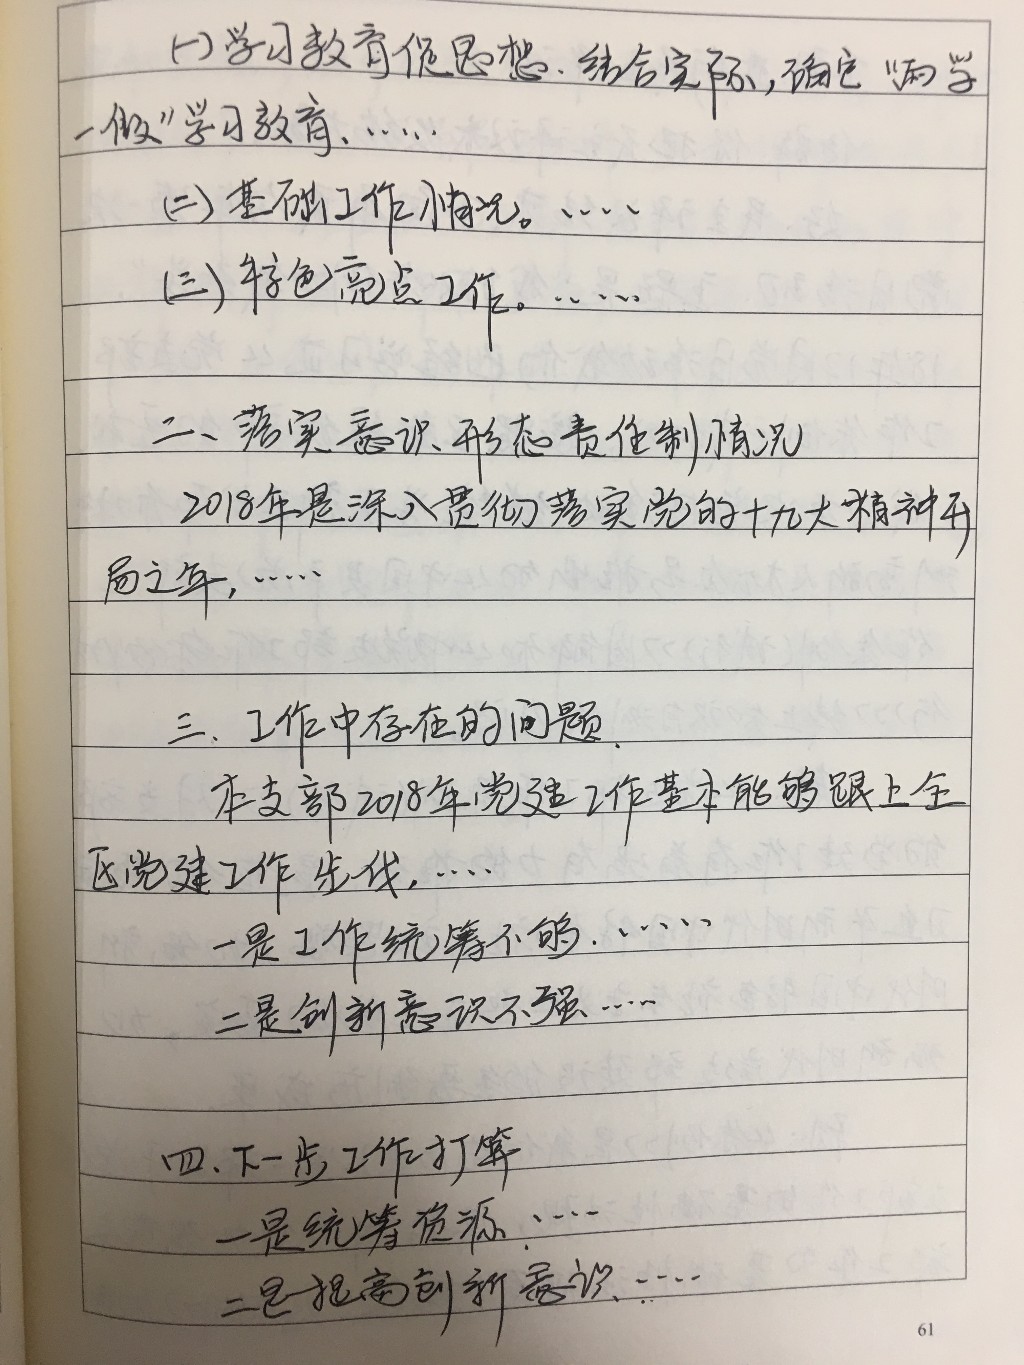 (一)学习教育促思想.结合实际,确定“两学
一做”学习教育,……
(二)基础工作情况。……
(三)特色亮点工作。……
二、落实意识形态责任制情况
2018年是深入贯彻落实党的十九大精神开
局之年,……
三、工作中存在的问题.
本支部2018年党建工作基本能够跟上全
区党建工作步伐,……
一是工作统筹不够.……
二是创新意识不强.……
四、下一步工作打算
一是统筹资源,……
二是提高创新意识.……
61